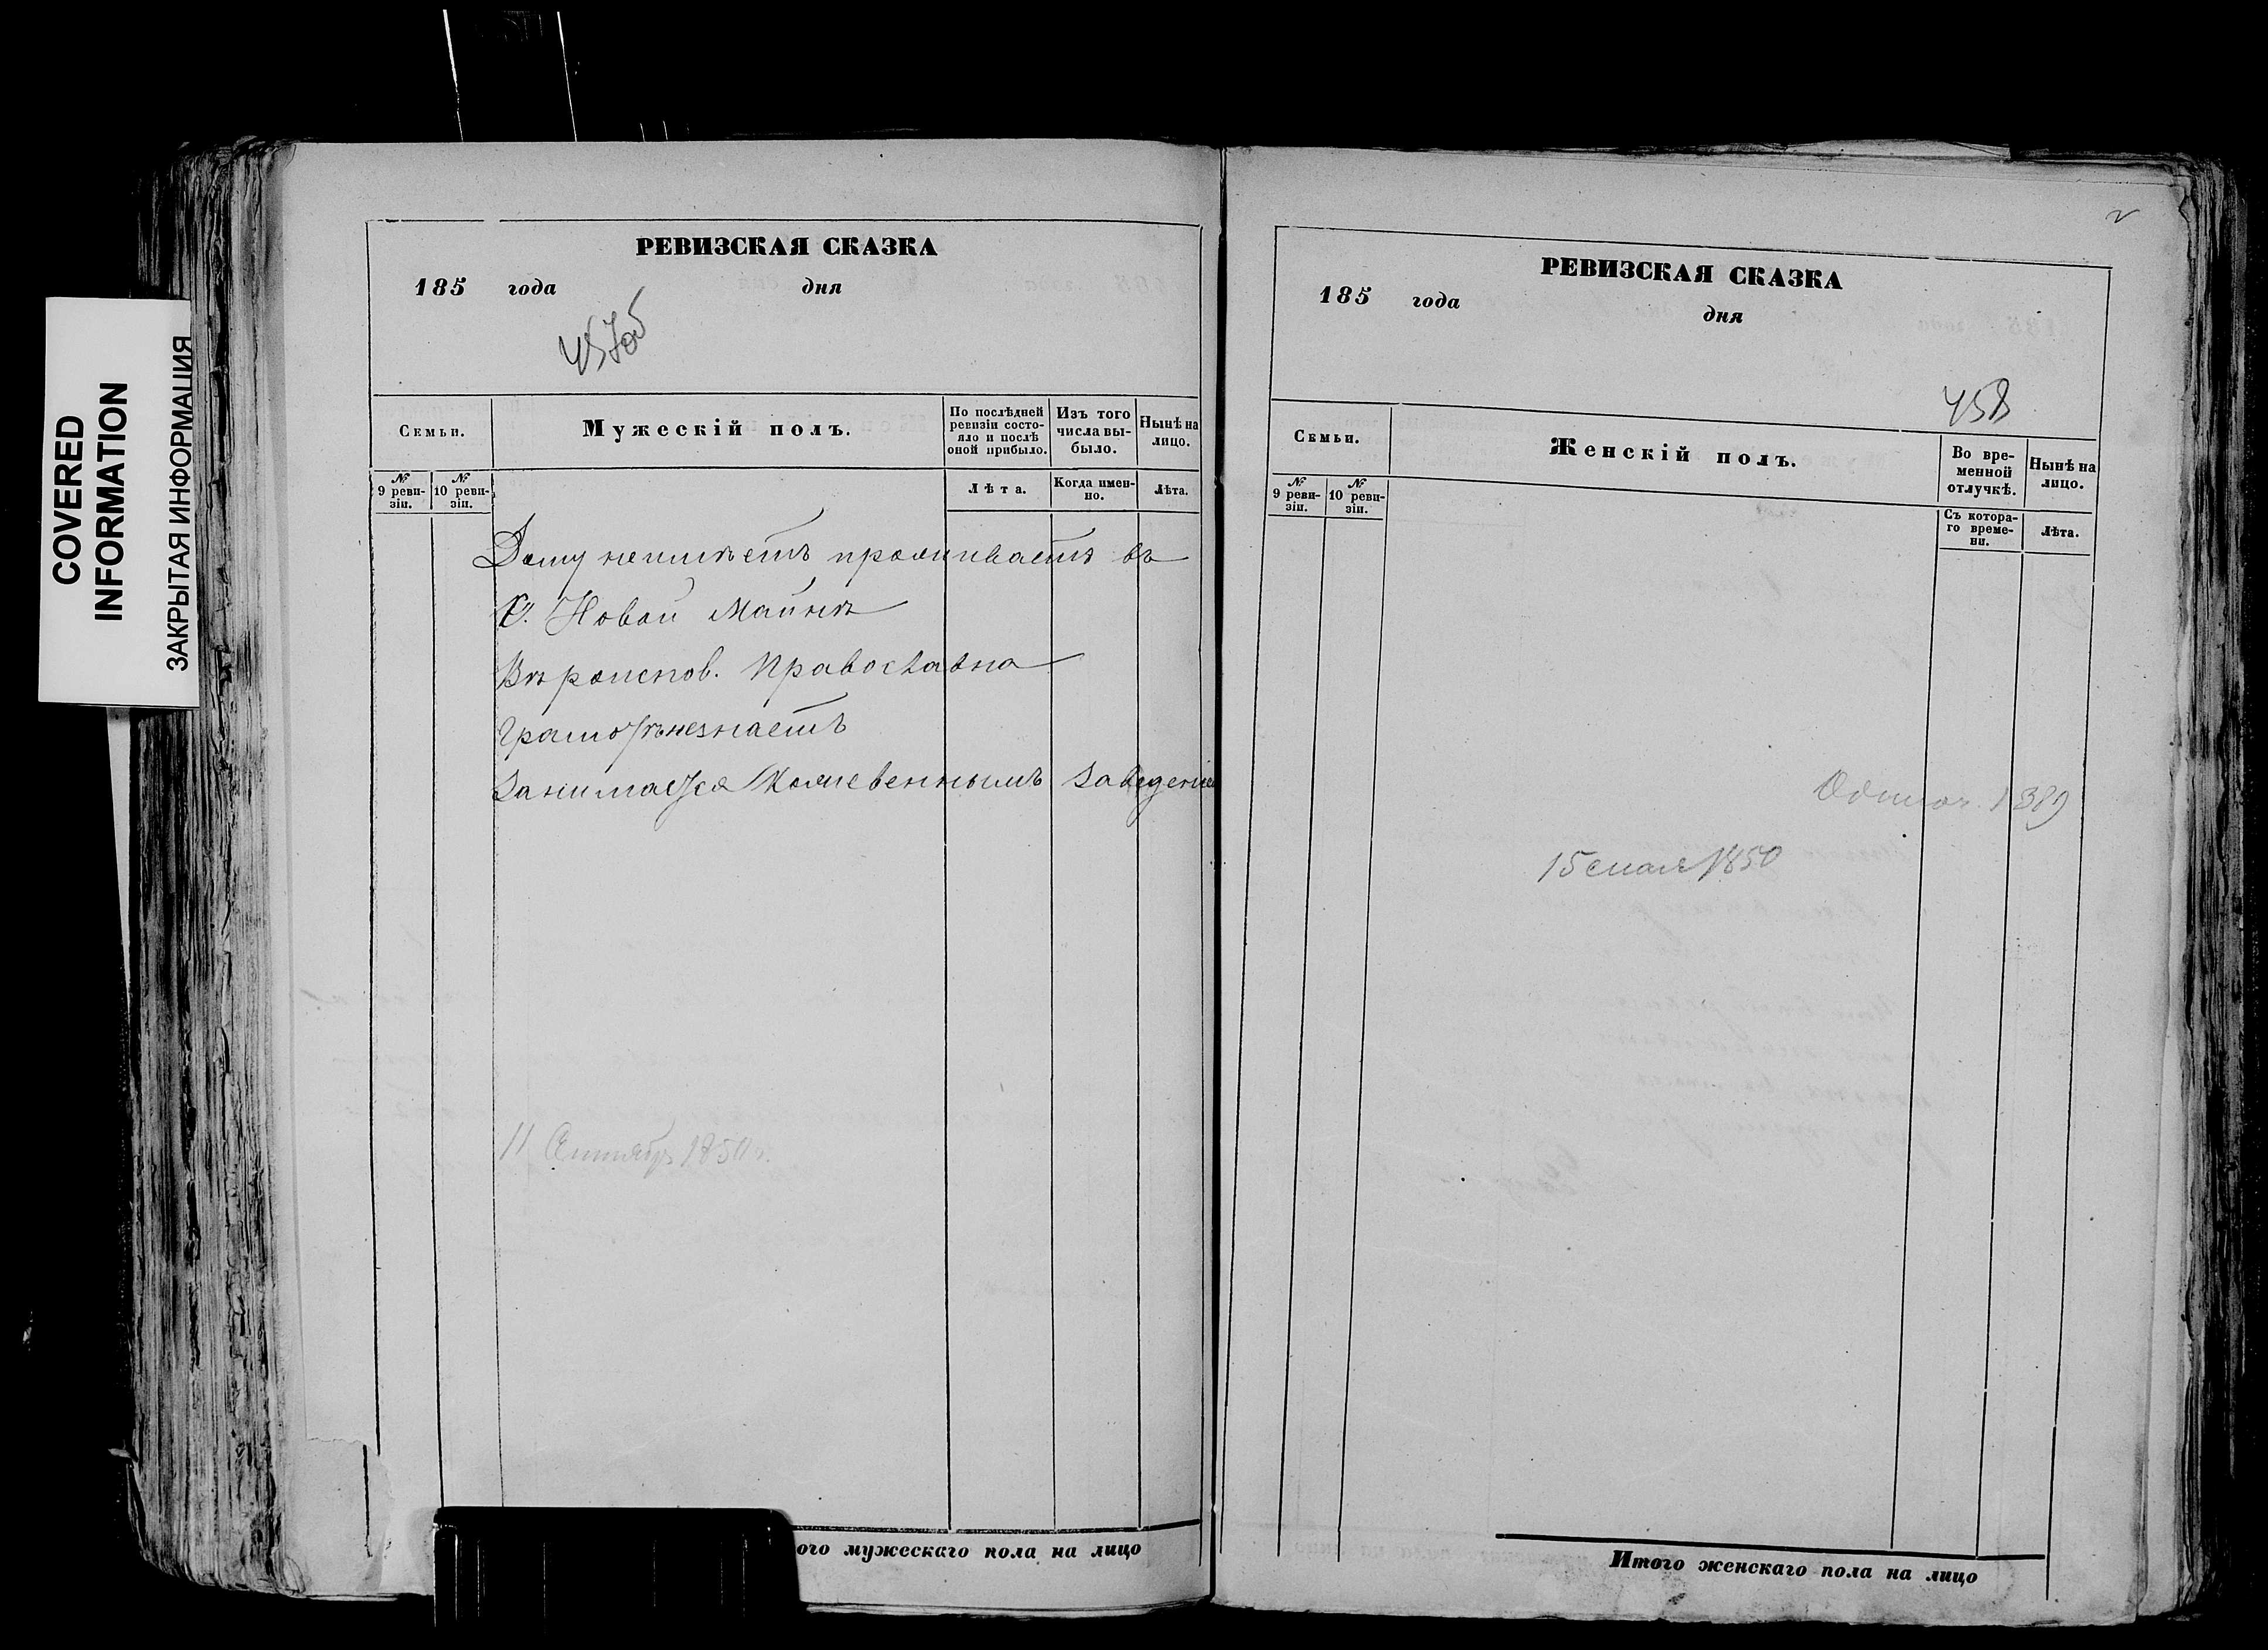 COVERED
INFORMATION
ЗАКРЫТАЯ ИНФОРМАЦИЯ
РЕВИЗСКАЯ СКАЗКА
185 года дня
457об
Семьи.
Мужескій полъ.
По послѣдней ревизіи состо-
яло и послѣ
оной прибыло.
Изъ того
числа вы-
было.
Нынѣ на
лицо.
№
9 реви-
зіи.
№
10 реви-
зіи.
Лѣта.
Когда имен-
но.
Лѣта.
Дому неимѣетъ проживаетъ въ
С. Новой Майнѣ
Вѣроиспов. Православна
Грамотѣ незнаетъ
Занимается Кожевеннымъ заведеніе
11 Сентября 1850 г.
ого мужескаго пола на лицо
РЕВИЗСКАЯ СКАЗКА
185 года дня
458
Семьи.
Женскій полъ.
Во вре-
менной
отлучкѣ.
Нынѣ на
лицо.
№
9 реви-
зіи.
№
10 реви-
зіи.
Съ котора-
го време-
ни.
Лѣта.
1389
15 1850
Итого женскаго пола на лицо